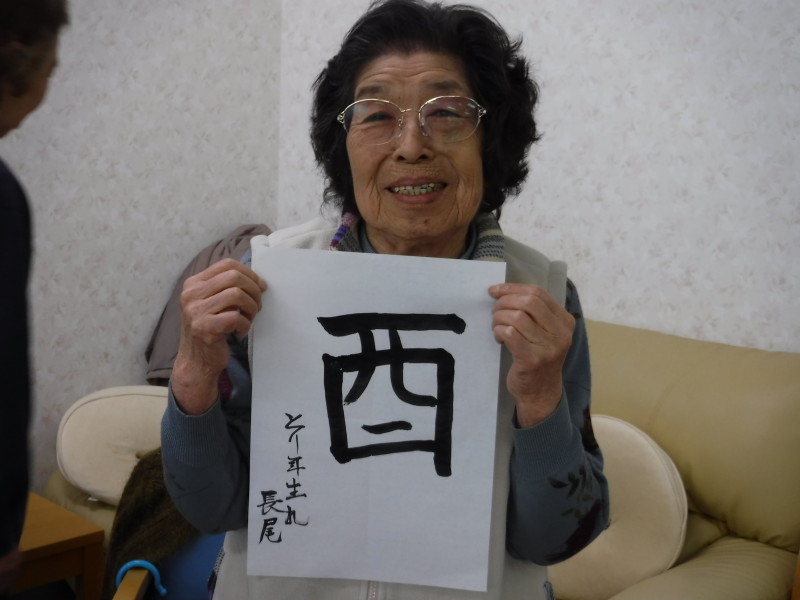 酉
とり年生れ
長尾